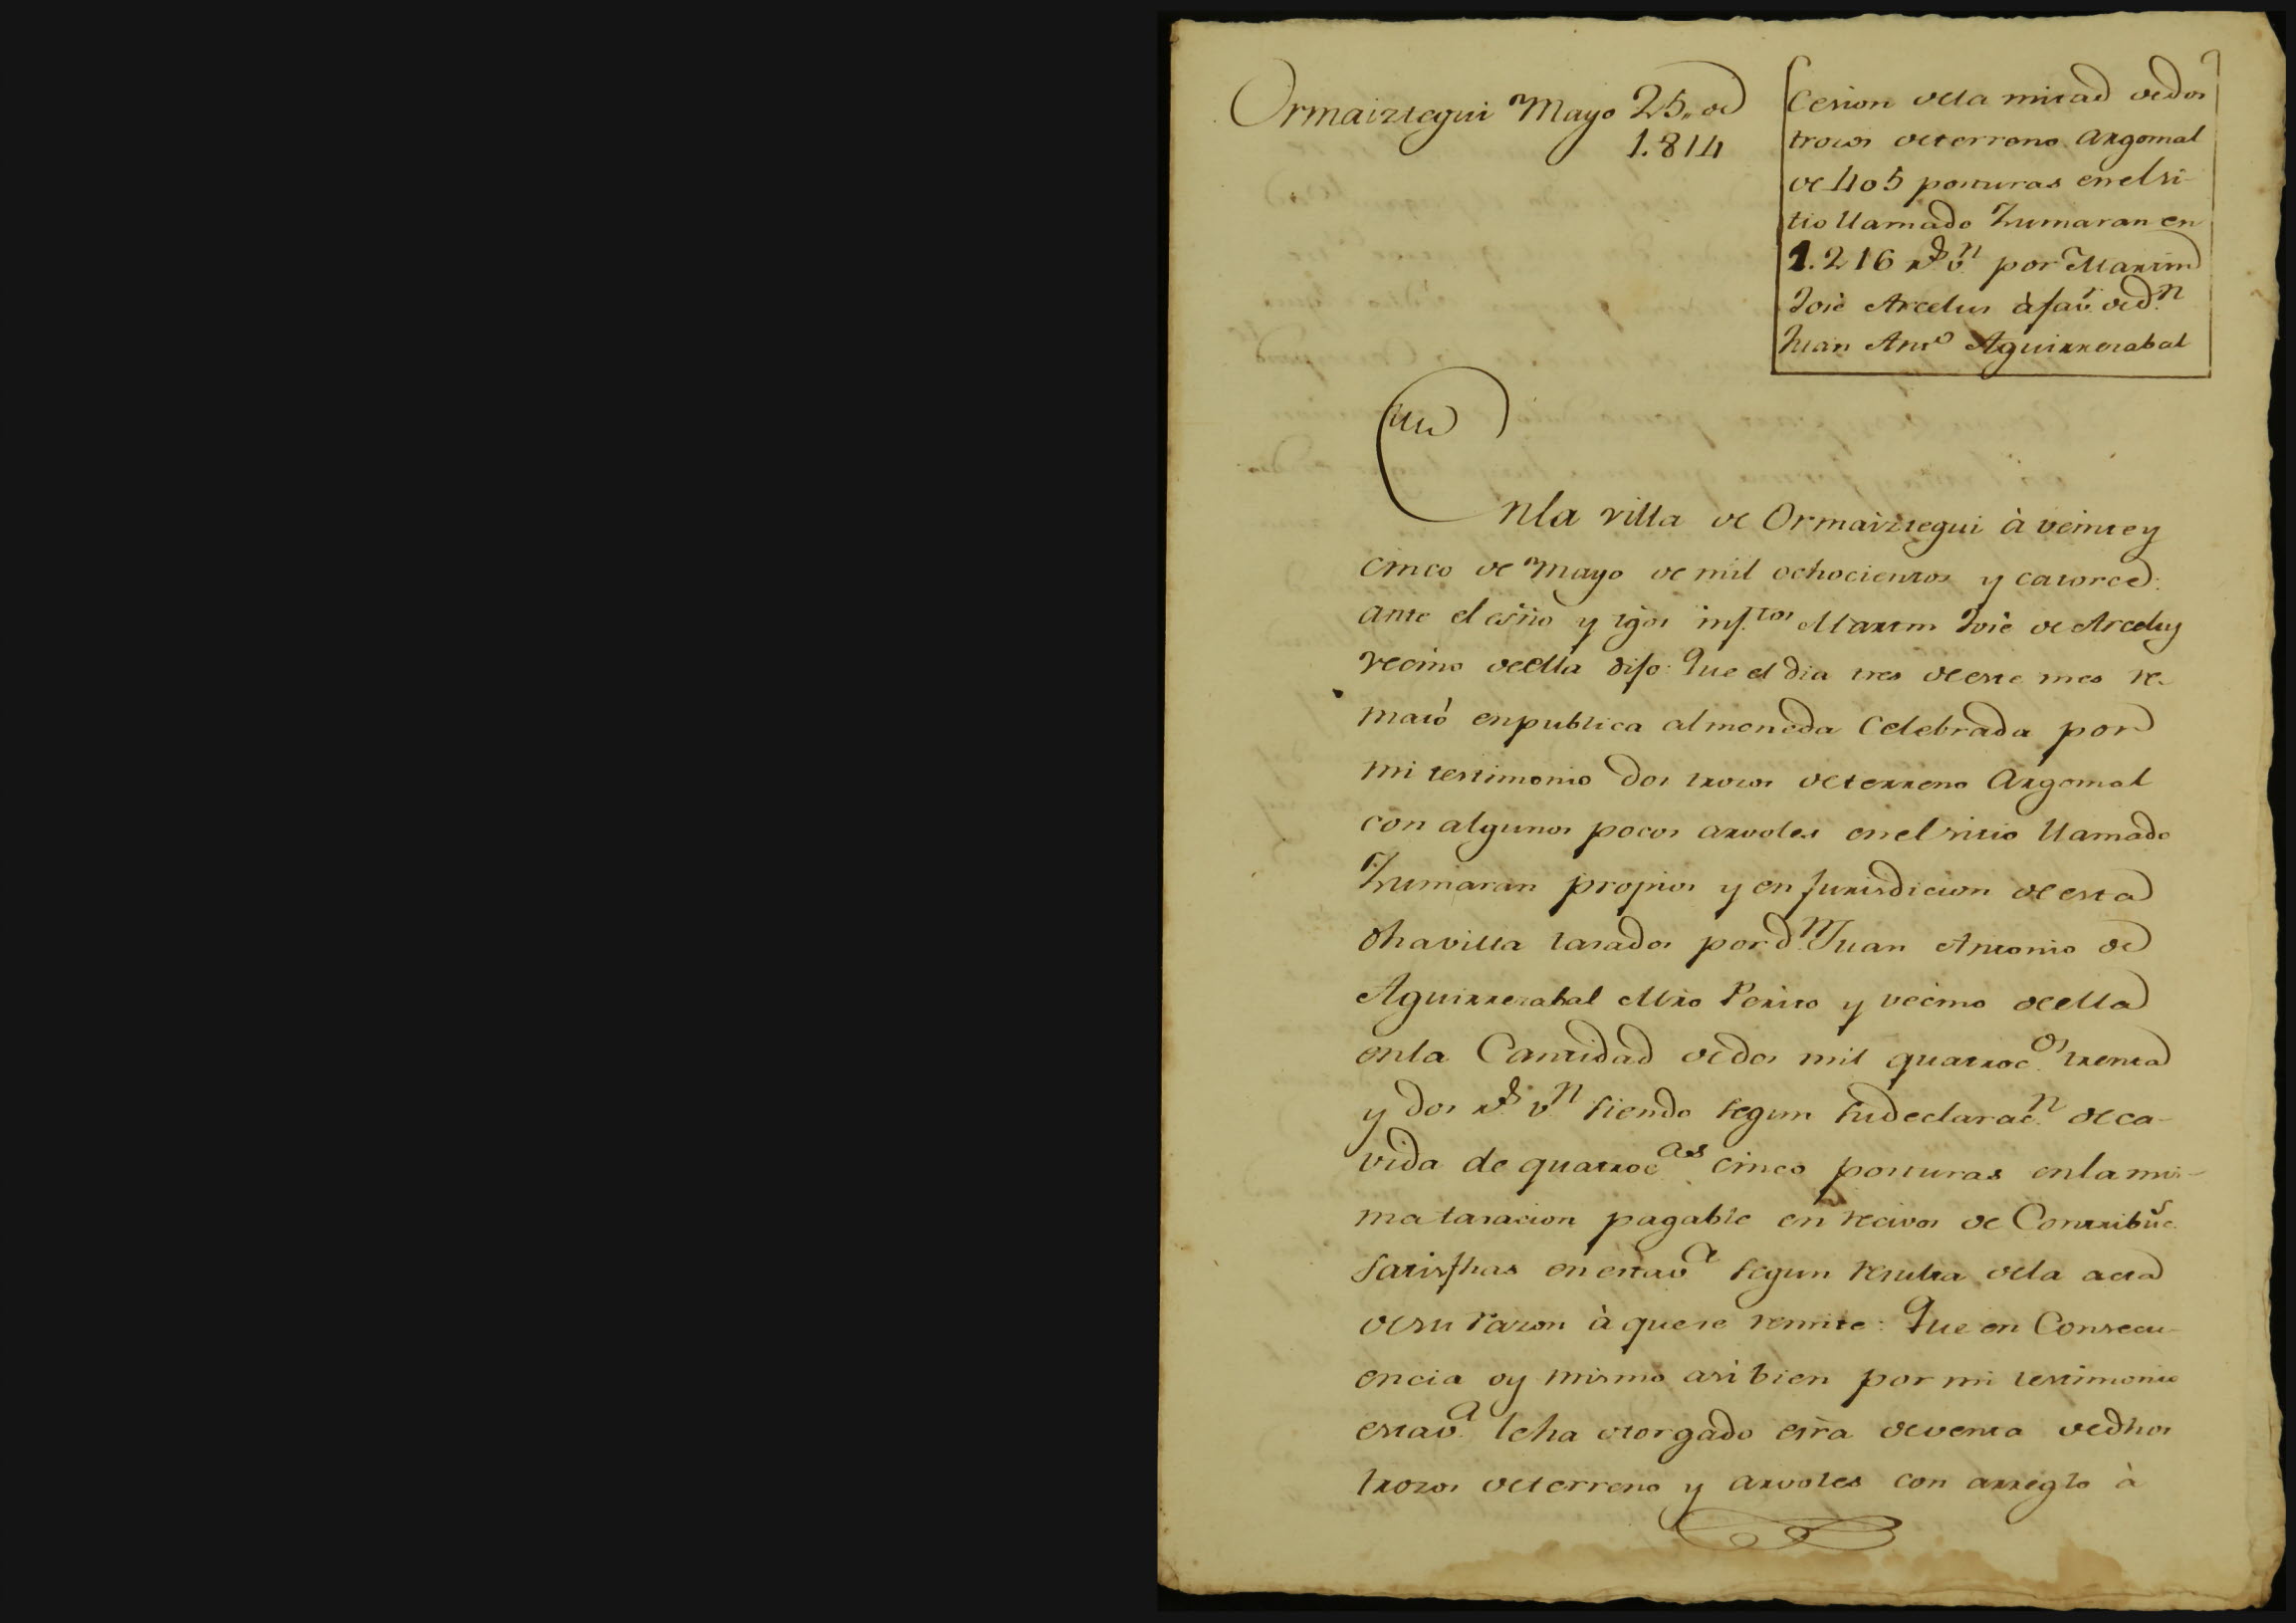 Ormaiztegui Mayo 25,, de
1.814
Cesion dela mitad dedos
trozos deterreno Argomal
de 405 posturas enelsi-
tio llamado Zumaran en
1.216 r.s v.n por Martin
José Arcelus à fav.r de d.n
Juan Ant.o Aguirrezabal
Enla villa de Ormaiztegui à veinte y
cinco de Mayo de mil ochocientos y catorce:
ante el esño y tgos inf.tos Martin José de Arcelus
vecino deella dijo: Que el dia tres deeste mes re-
mató enpublica almoneda celebrada por
mi testimonio dos trozos deterreno Argomal
con algunos pocos arvoles enel sitio llamado
Zumaran propios y en jurisdicion de esta
dhavilla tasados por d.n Juan Antonio de
Aguirrezabal Mro Perito y vecino deella
enla Cantidad dedos mil quatroc.os treinta
y dos r.s v.n siendo segun sudeclarac.n de ca-
vida de quatroc.as cinco posturas enlamis-
ma tasacion pagable en recivos de Contribuc.s
satisfhas en estav.a segun resulta dela acta
desu razon à quese remite: Que en Consecu-
encia oy mismo asi bien por mi testimonio
estav.a leha otorgado esrã deventa dedhos
trozos deterreno y arvoles con arreglo à